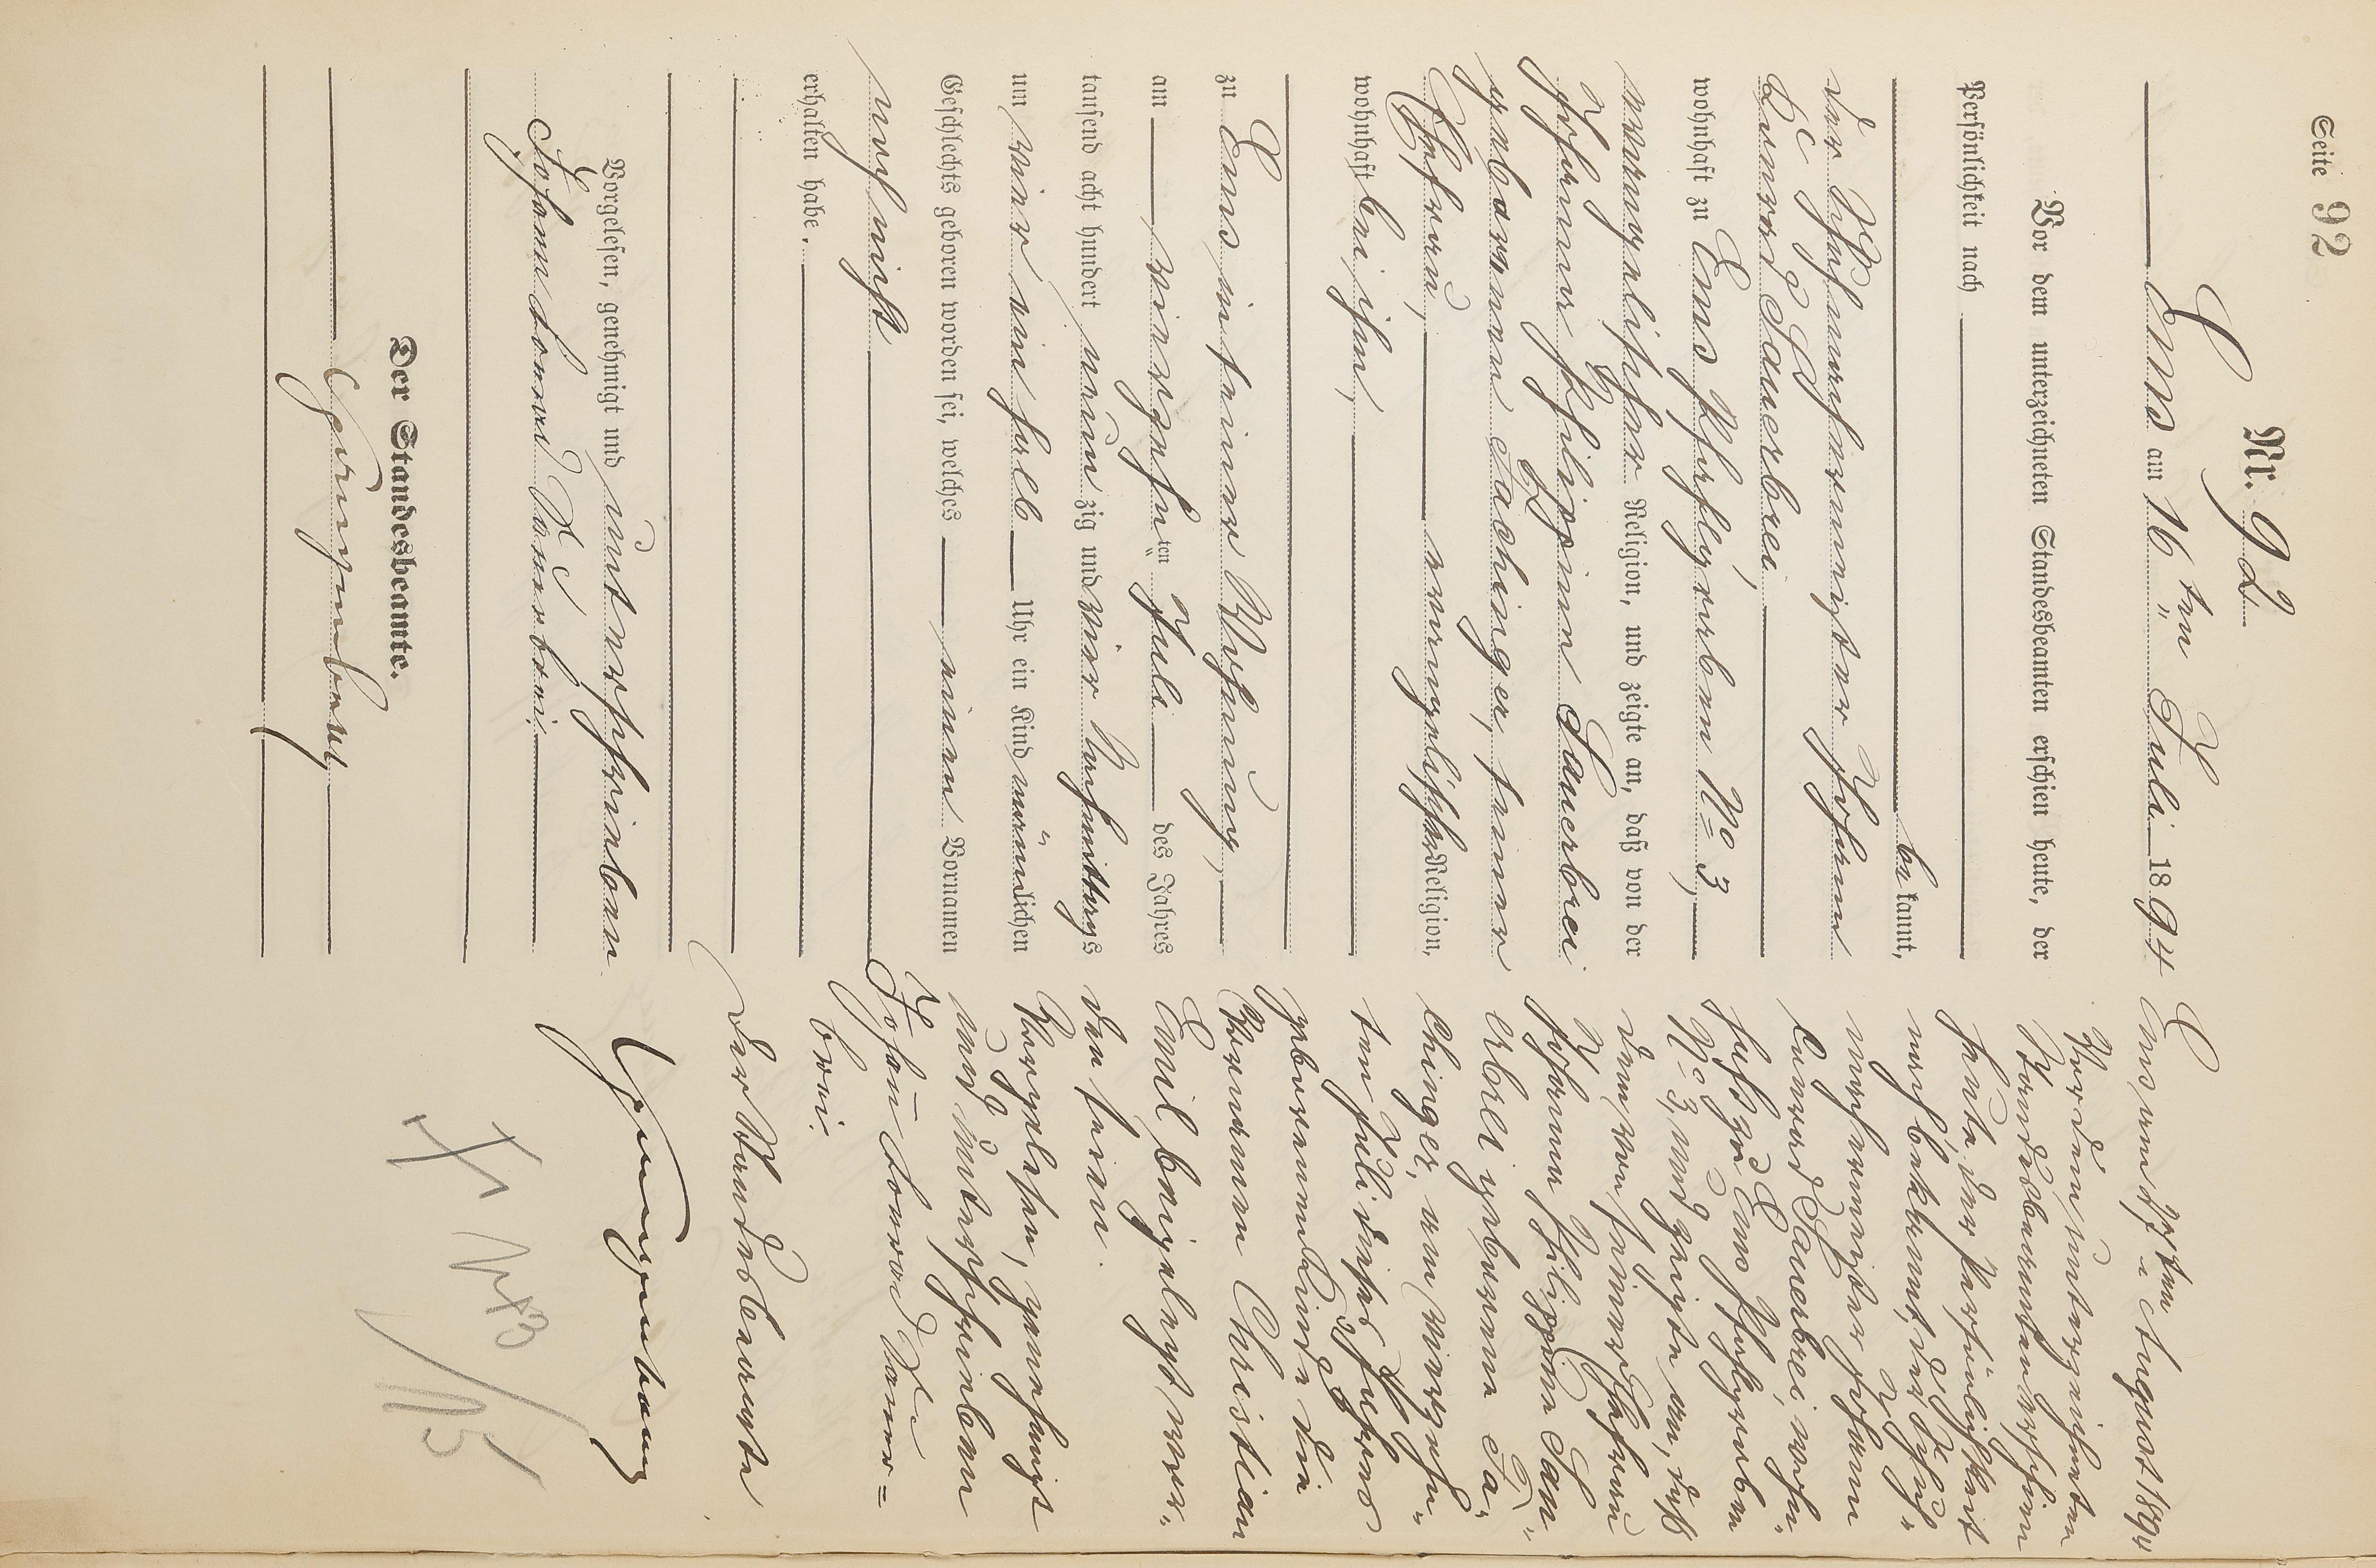 Seite 92
Nr. 92
Ems am 16 ten Juli 1894
Vor dem unterzeichneten Standesbeamten erschien heute, der
Persönlichkeit nach
be kannt,
der Schuhmachermeister Johann
Conrad Sauerbrei,
wohnhaft zu Ems Pfahlgraben No 3,
evangelischer Religion, und zeigte an, daß von der
Johanna Philippine Sauerbrei
geborenen Fachinger, seiner
Ehefrau, evangelischer Religion,
wohnhaft bei ihm,
zu Ems in seiner Wohnung,
am vierzehn ten Juli des Jahres
tausend acht hundert neun zig und vier Nachmittags
um vier ein halb Uhr ein Kind männlichen
Geschlechts geboren worden sei, welches einen Vornamen
noch nicht
erhalten habe.
Vorgelesen, genehmigt und unterschrieben
Johann Conrad Sauerbrei.
Der Standesbeamte.
Spangenberg
Ems am ten August 1894
Vor dem unterzeichneten
Standesbeamten erschien
heute der Persönlichkeit
nach bekannt, der Schuh„
machermeister Johann
Conrad Sauerbrei, wohn„
haft zu Ems Pfahlgraben
No 3, und zeigte an, daß
dem von seiner Ehefrau
Johanna Philippine Sau„
erbrei geborene Fa„
chinger, am vierzehn„
ten Juli dieses Jahres
geborenen Kinde die
Vornamen Christian
Emil beigelegt wor„
den seien.
Vorgelesen, genehmigt
und unterschrieben
Johann Conrad Sauer=
brei.
Der Standesbeamte
Spangenberg